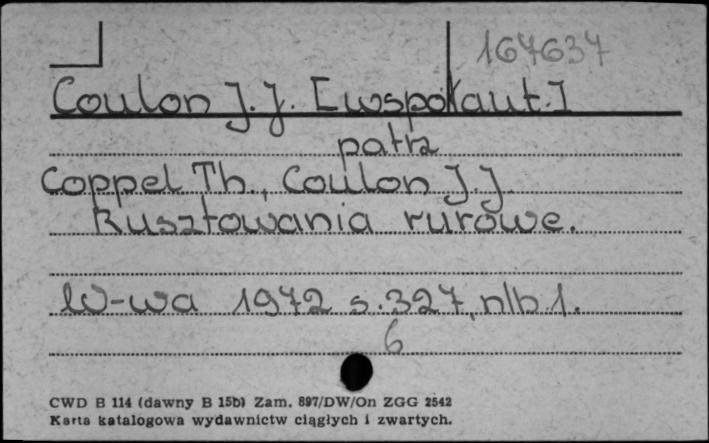 167637
Coulon J.J. [współaut.]
patrz
Coppel Th., Coulon J.J.
Rusztowania rurowe.
W-wa 1972 s.327, nlb 1.
6
CWD B 114 (dawny B 15b) Zam. 897/DW/On ZGG 2542
Karta katalogowa wydawnictw ciągłych i zwartych.